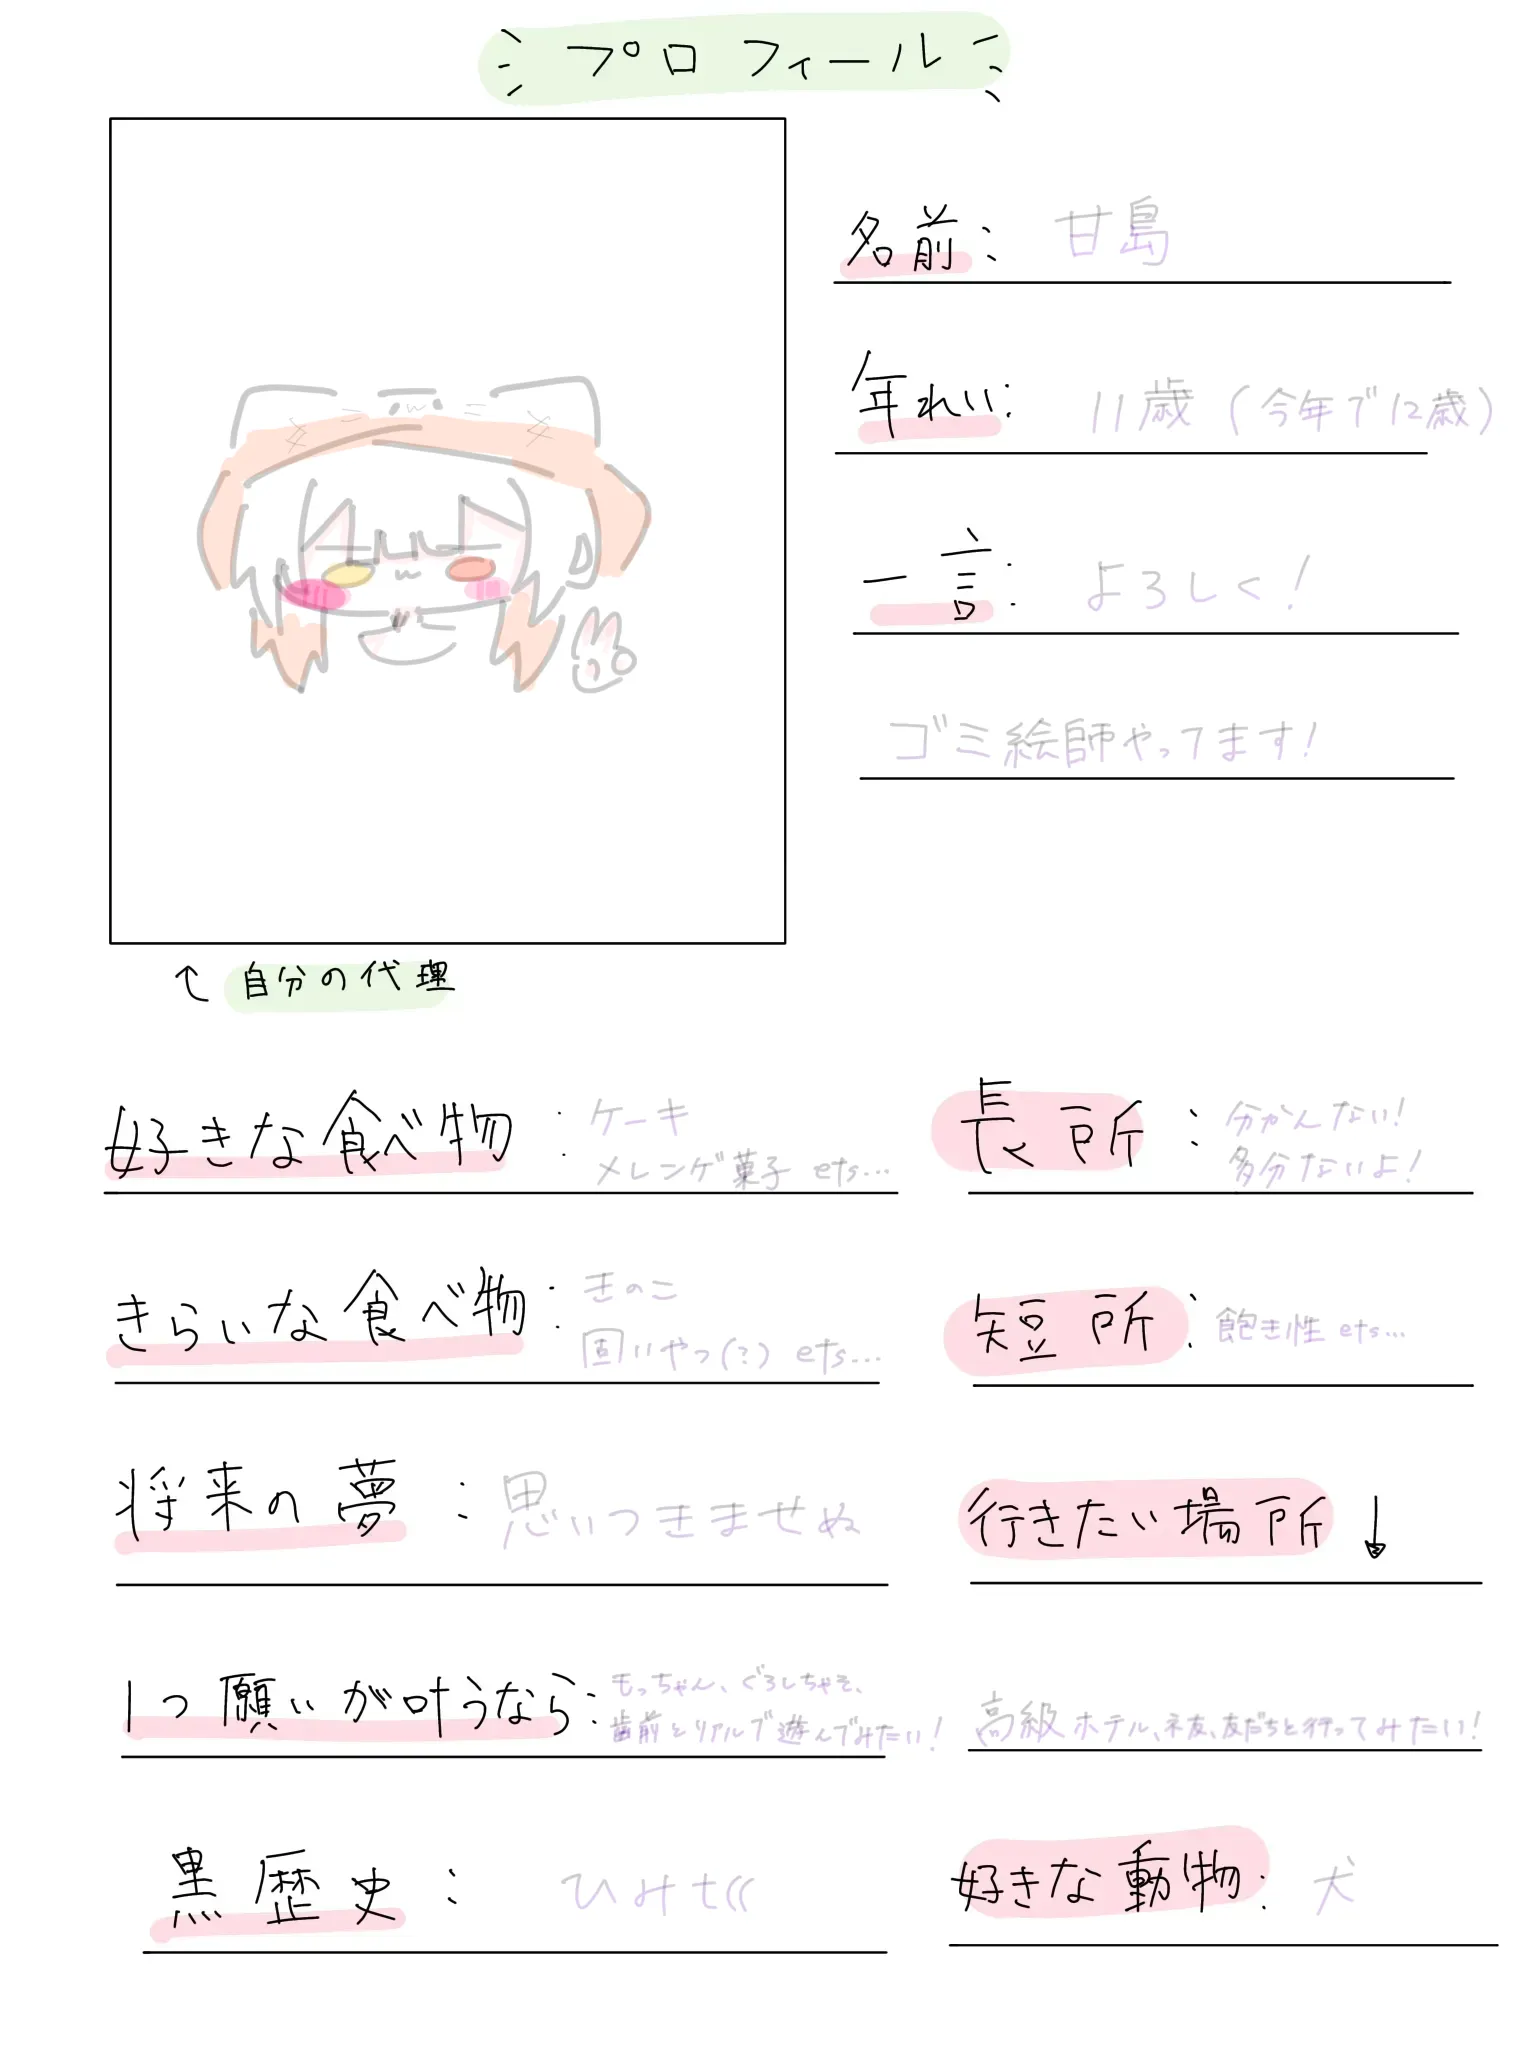 プロフィール
名前: 甘島
年れい: 11歳(今年で12歳)
一言: よろしく!
ゴミ絵師やってます!
↑自分の代理
好きな食べ物: ケーキ
メレンゲ菓子 ets...
長所: 分かんない!
多分ないよ!
きらいな食べ物: きのこ
固いやつ(?) ets...
短所: 飽き性 ets...
将来の夢: 思いつきませぬ
行きたい場所↓
1つ願いが叶うなら: もっちゃん、ぐろしちゃそ、
歯前とリアルで遊んでみたい!
高級ホテル、ネ友、友だちと行ってみたい!
黒歴史: ひみt((
好きな動物: 犬